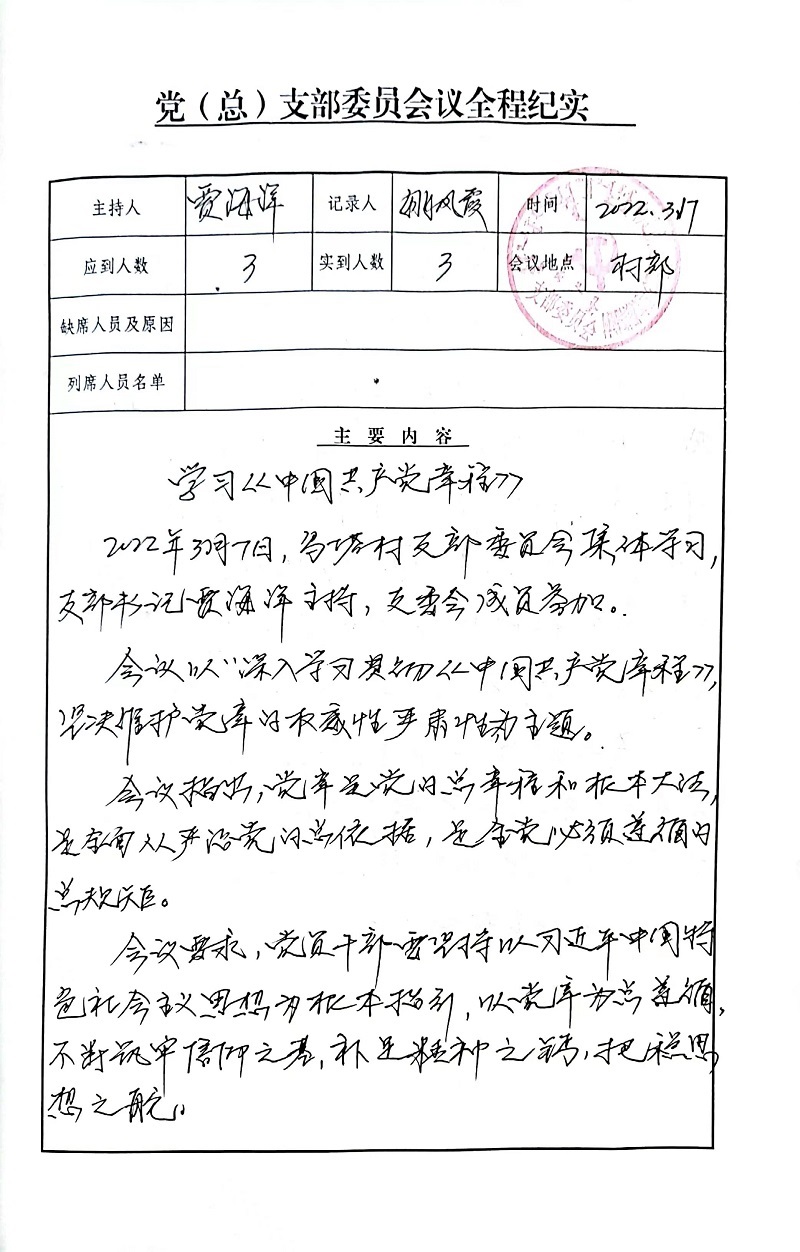 党（总）支部委员会议全程纪实
主持人 贾海洋 记录人 凤霞 时间 2022.3.7
应到人数 3 实到人数 3 会议地点 村部
缺席人员及原因
列席人员名单
支部委员会
主要内容
学习《中国共产党章程》
2022年3月7日，塔村支部委员会集体学习，
支部书记贾海洋主持，支委会成员参加。
会议以"深入学习贯彻《中国共产党章程》，
坚决维护党章的权威性严肃性为主题。
会议指出，党章是党的总章程和根本大法，
是全面从严治党的总依据，是全党必须遵循的
总规矩。
会议要求，党员干部要坚持以习近平中国特
色社会主义思想为根本指引，以党章为总遵循，
不断筑牢信仰之基，补足精神之钙，把稳思
想之舵。